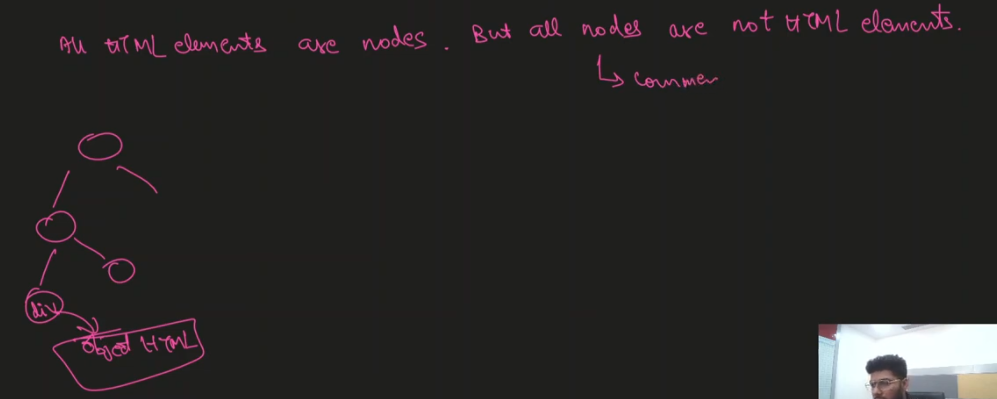 All HTML elements are nodes. But all nodes are not HTML elements.
↳ commen
div
object HTML